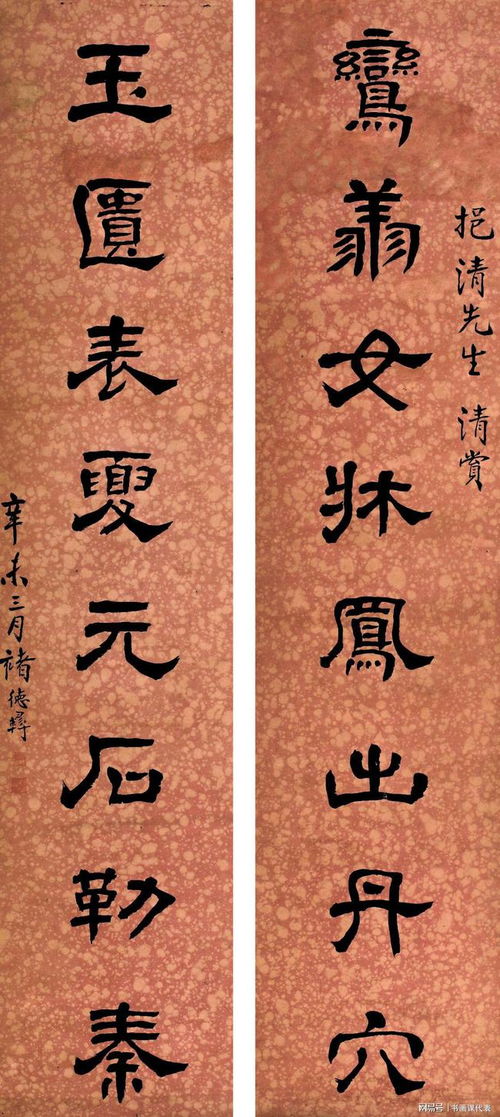 鸞翔女牀鳳出丹穴
挹清先生 清賞
玉匱表夏元石勒秦
辛未三月褚德彝
网易号 | 书画课代表